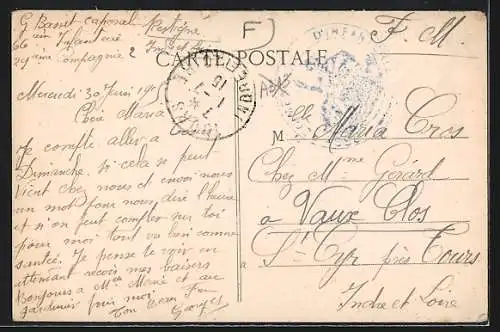 G Basset caporal
66ème Infanterie
29ème compagnie
F. M.
F
CARTE POSTALE
D'INFANTERIE
Mercredi 30 Juin 191
Chère Maria
Je compte aller à
Dimanche si cela se peut
Vient chez nous et envoi nous
un mot pour nous dire l'heure
et si on peut compter sur toi
pour moi tout va bien comme
santé. Je pense te voir en
attendant reçois mes baisers
Bonjours à Mme Mémé et au
Jardinier pour moi
Ton
Georges
M elle Maria Cros
Chez Mme Gérard
à Vaux Clos
St Cyr près Tours
Indre et Loire